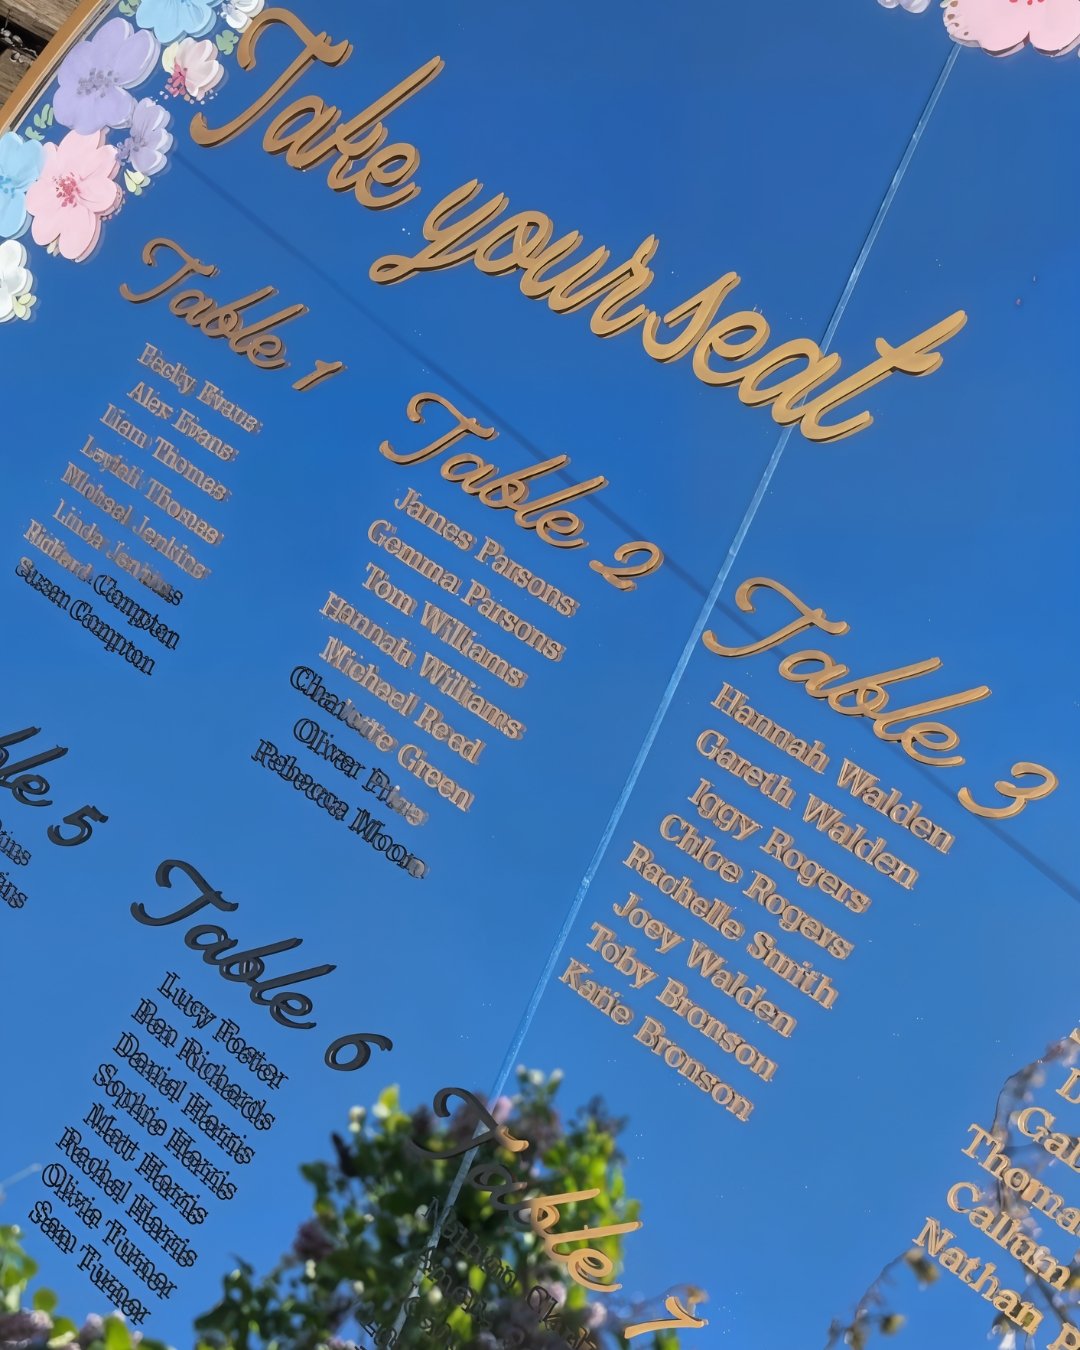 Take your seat
Table 1
Becky Evans
Alex Evans
Liam Thomas
Thomas
Michael Jenkins
Linda Jenkins
Richard Compton
Susan Compton
Table 2
James Parsons
Gemma Parsons
Tom Williams
Hannah Williams
Michael Reed
Charlotte Green
Oliver Price
Rebecca Moon
Table 3
Hannah Walden
Gareth Walden
Iggy Rogers
Chloe Rogers
Rachelle Smith
Joey Walden
Toby Bronson
Katie Bronson
5
Table 6
Lucy Foster
Ben Richards
Daniel Harris
Sophie Harris
Matt Harris
Rachel Harris
Olivia Turner
Sam Turner
Table 7
Callum
Nathan